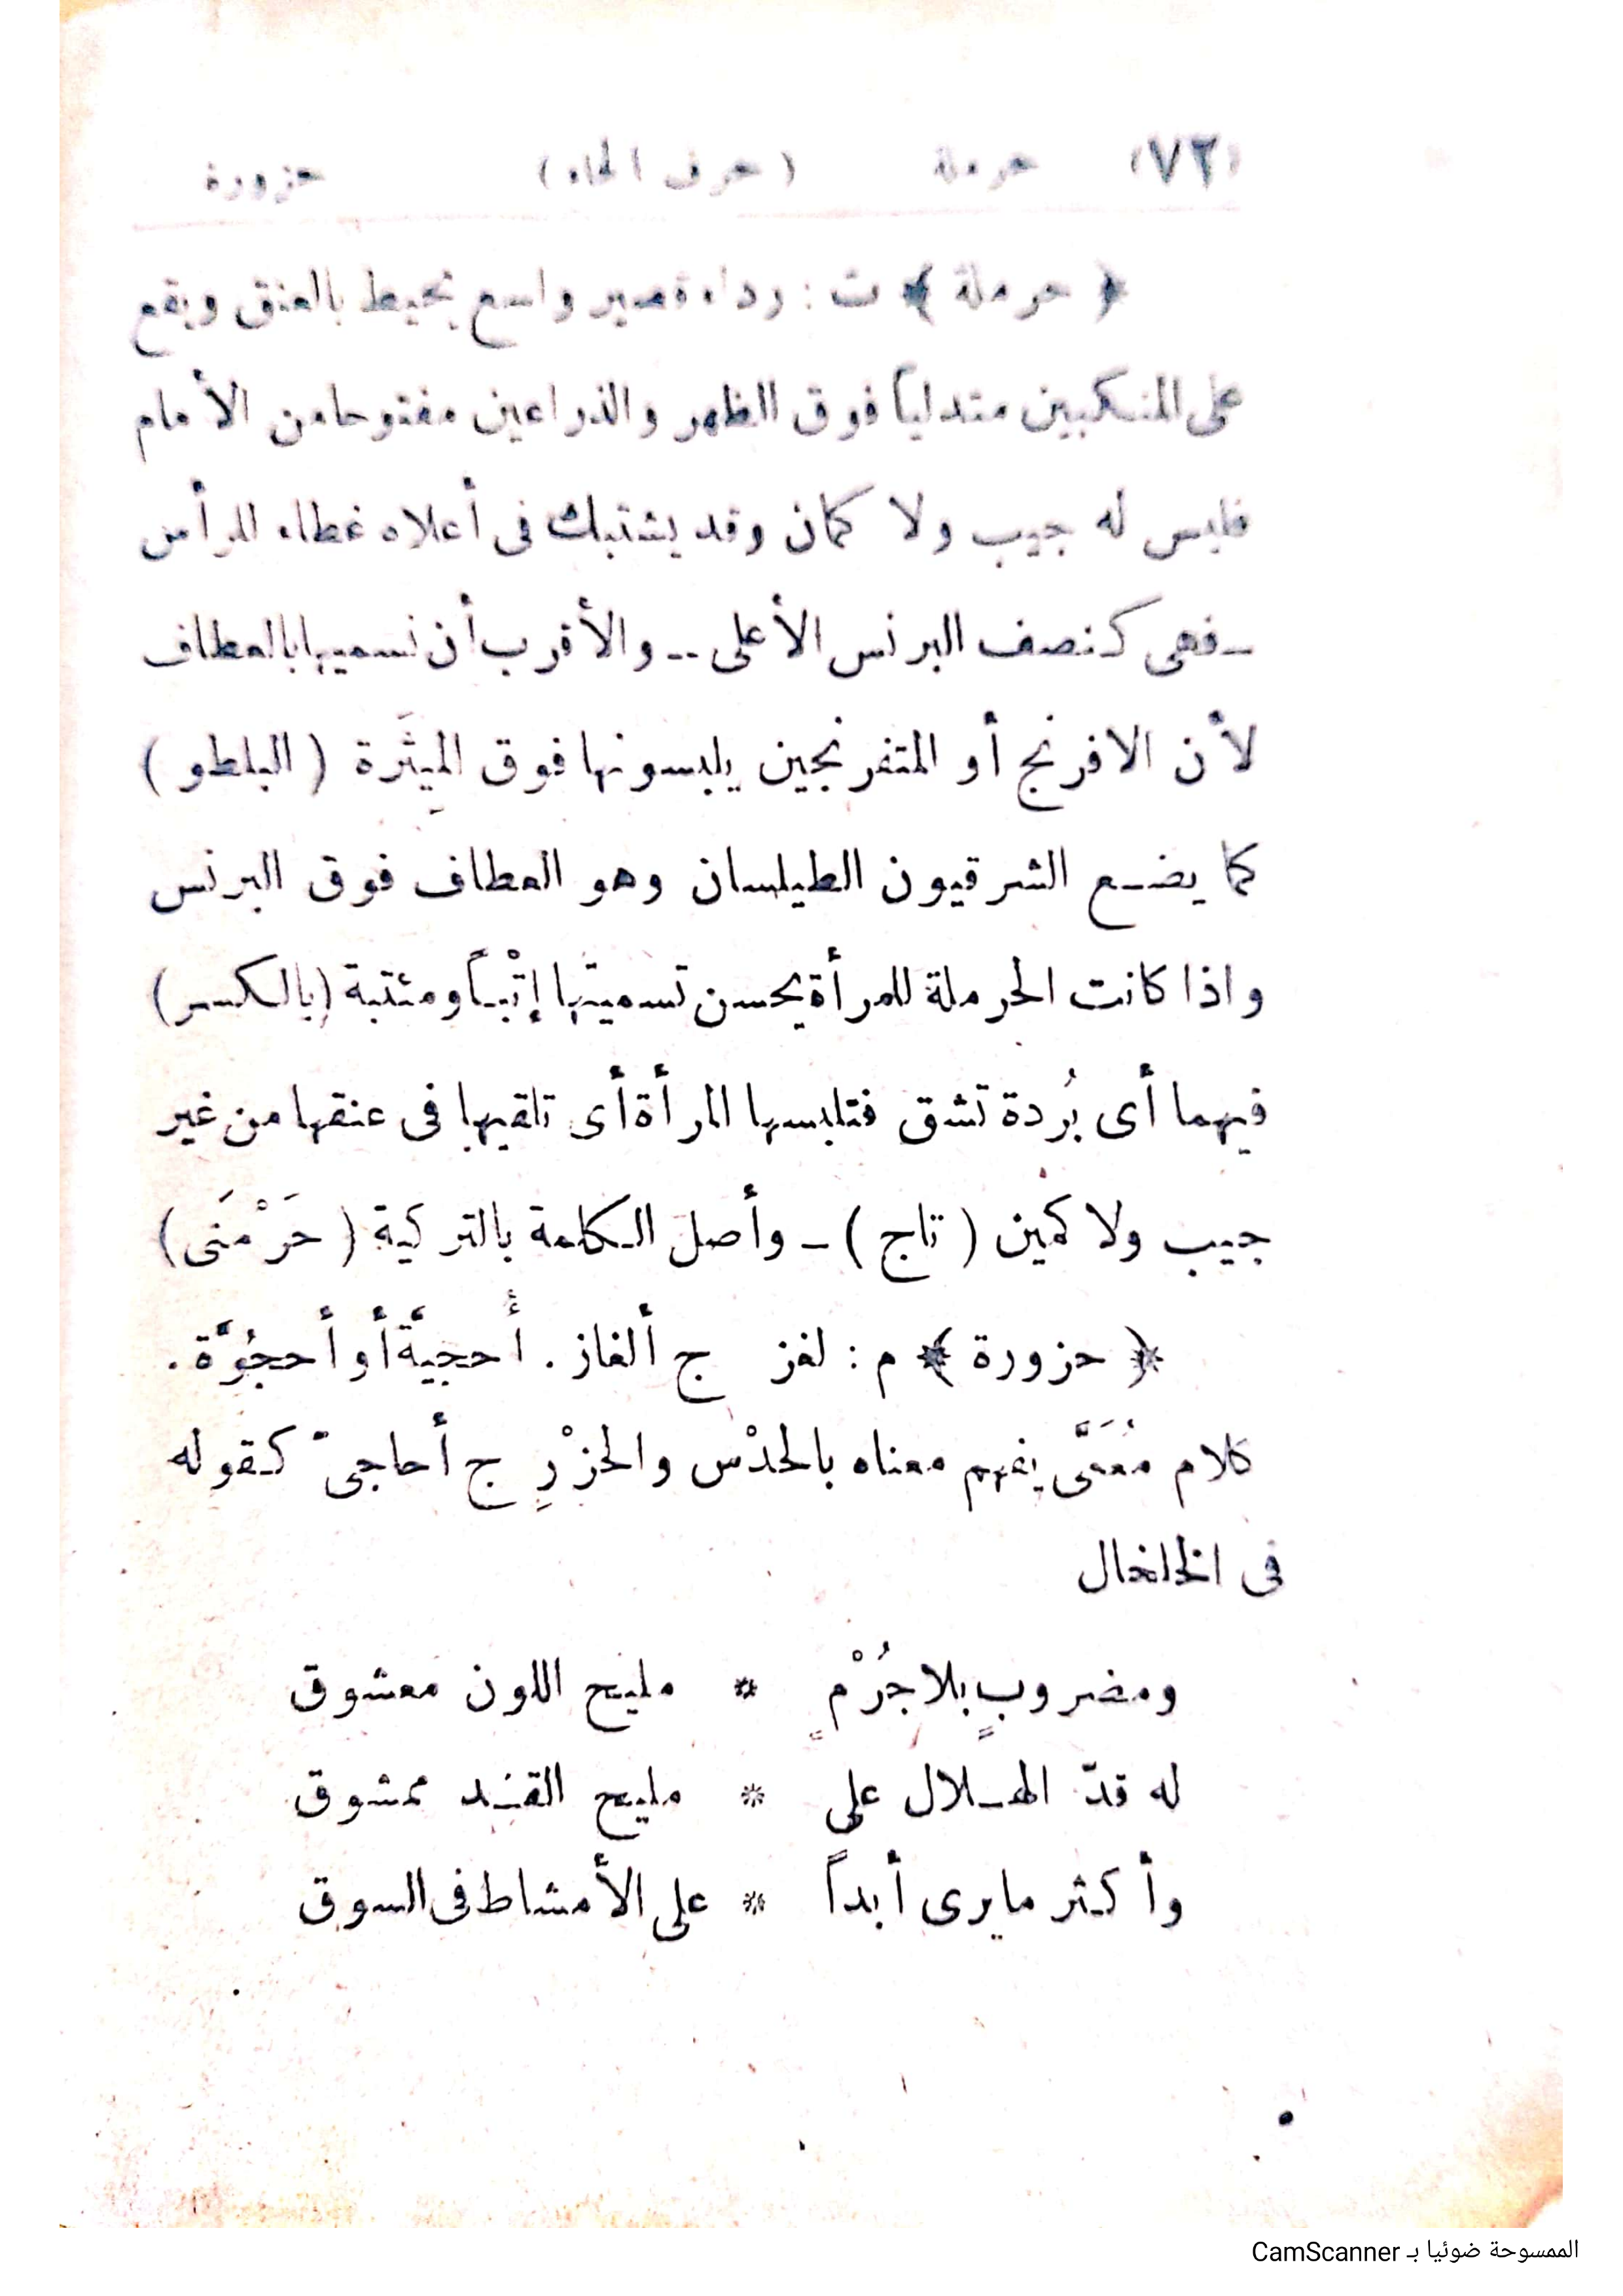 (٧٢) حرملة (حرف الحاء) حزورة
﴿ حرملة ﴾ ت : رداء قصير واسع يحيط بالعنق ويقع
على المنكبين متدلياً فوق الظهر والذراعين مفتوحا من الأمام
فليس له جيب ولا كمان وقد يشتبك فى أعلاه غطاء للرأس
ــ فهى كنصف البرنس الأعلى ــ والأقرب أن نسميها بالعطاف
لأن الافرنج أو المتفرنجين يلبسونها فوق المِيثَرة ( البلطو )
كما يضع الشرقيون الطيلسان وهو العطاف فوق البرنس
واذا كانت الحرملة للمرأة يحسن تسميتها إتْباً ومئتبة (بالكسر)
فيهما أى بُردة تشق فتلبسها المرأة أى تلقيها فى عنقها من غير
جيب ولا كمين ( تاج ) ــ وأصل الكلمة بالتركية ( حَرْمَنَى )
﴿ حزورة ﴾ م : لغز ج ألغاز . أُحجيَّة أو أحجُوَّة .
كلام مُعَمَّى يفهم معناه بالحدْس والحزْرِ ج أحاجىّ كقوله
فى الخلخال
ومضروبٍ بلا جُرْمٍ * مليح اللون معشوق
له قدّ الهلال على * مليح القد ممشوق
وأكثر ما يرى أبداً * على الأمشاط فى السوق
الممسوحة ضوئيا بـ CamScanner